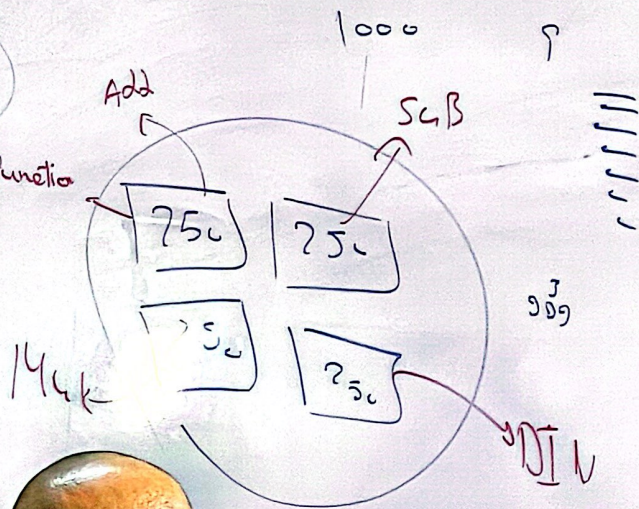 1000
Add
SuB
Functio
250
250
250
250
Mul
DIV